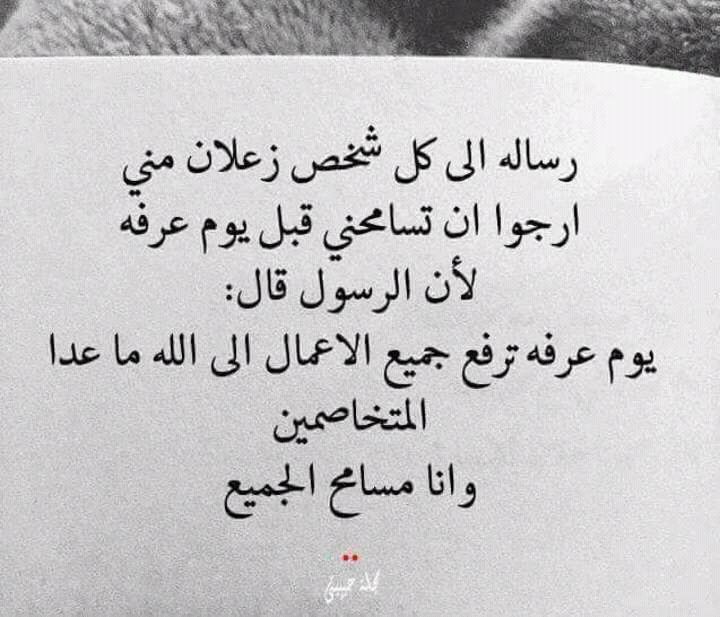 رساله الى كل شخص زعلان مني
ارجوا ان تسامحني قبل يوم عرفه
لأن الرسول قال:
يوم عرفه ترفع جميع الاعمال الى الله ما عدا
المتخاصمين
وانا مسامح الجميع